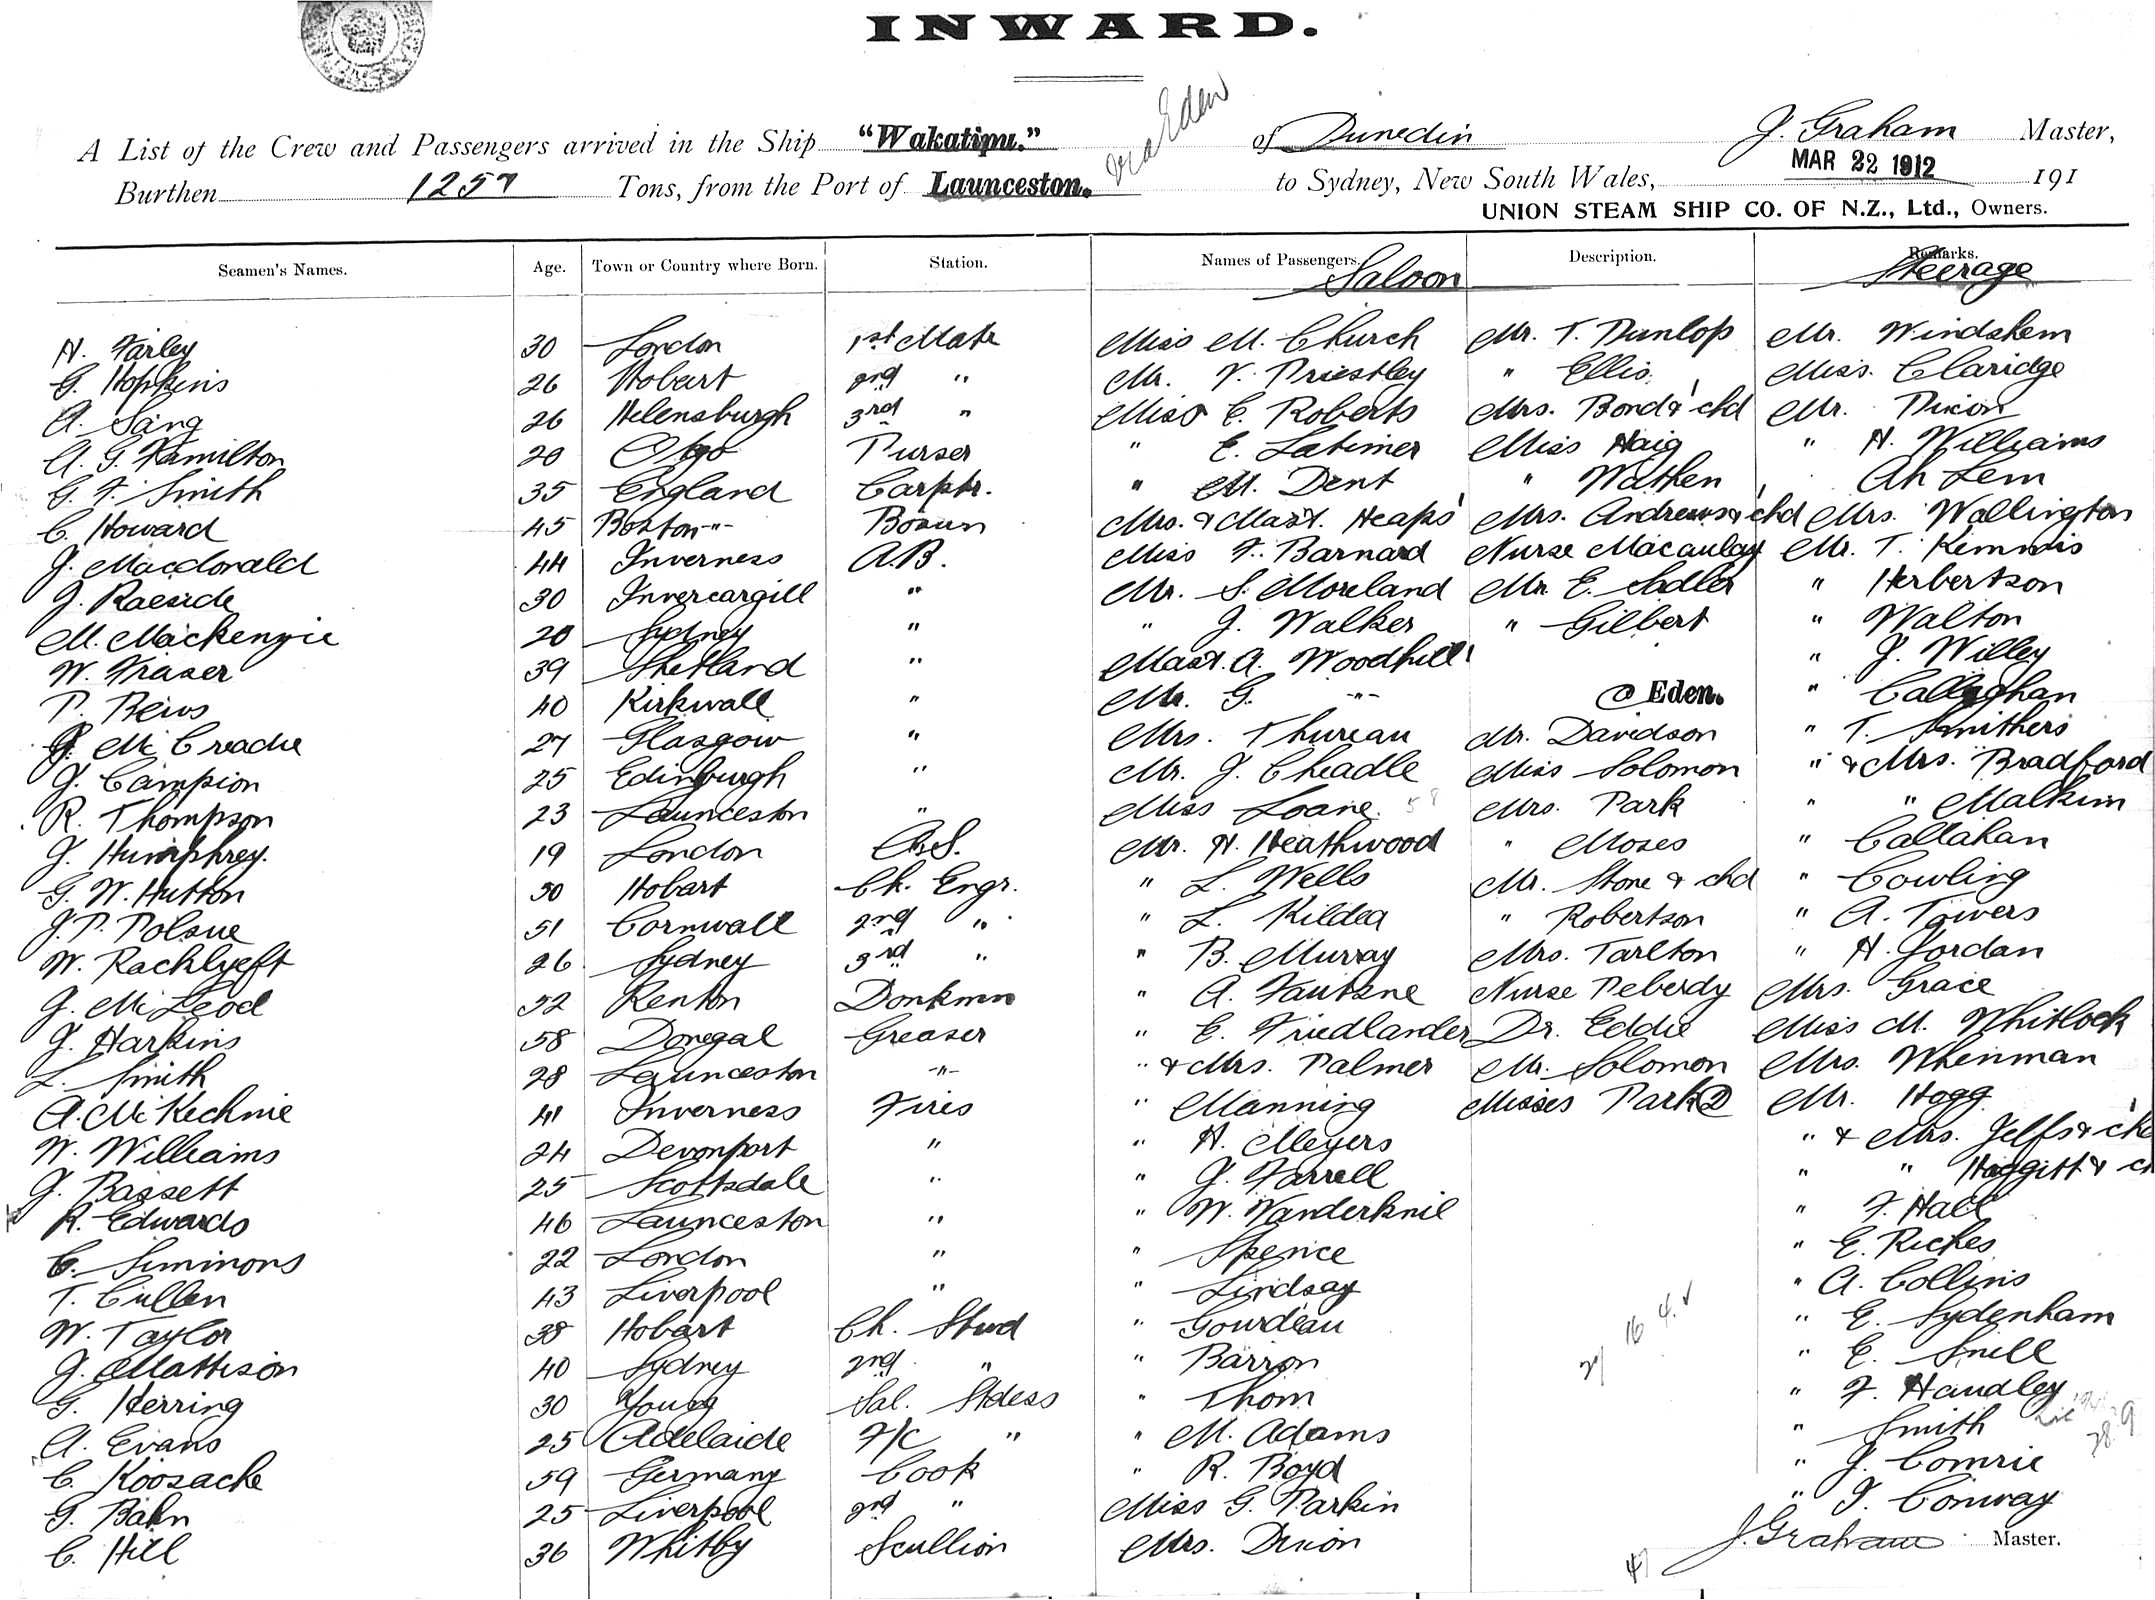 INWARD.
A List of the Crew and Passengers arrived in the Ship "Wakatipu." via Eden of Dunedin J. Graham Master,
Burthen 1257 Tons, from the Port of Launceston. to Sydney, New South Wales, MAR 22 1912 191
UNION STEAM SHIP CO. OF N.Z., Ltd., Owners.
Seamen's Names. Age. Town or Country where Born. Station. Names of Passengers. Description. Remarks.
Saloon Steerage
H. Farley 30 London 1st Mate Miss M. Church Mr. T. Dunlop Mr. Windshem
G. Hopkins 26 Hobart 2nd " Mr. V. Priestley " Ellis Miss. Claridge
A. Sang 26 Helensburgh 3rd " Miss E. Roberts Mrs. Bond & 1 chd Mr. Dixon
A. G. Hamilton 20 Otgo Purser " E. Latimer Miss Haig " H. Williams
G. F. Smith 35 England Carptr. " M. Dent " Wathen Ah Lem
C. Howard 45 Boston -"- Bosun Mrs. & Mast. Heaps Mrs. Andrews & 1 chd Mrs. Wallington
J. Macdonald 44 Inverness A.B. Miss F. Barnard Nurse Macaulay Mr. T. Kimmis
J. Raeside 30 Invercargill " Mr. S. Moreland Mr. E. Sadler " Herbertson
M. Mackenzie 20 Sydney " " J. Walker " Gilbert " Walton
W. Fraser 39 Shetland " Mast. A. Woodhill " J. Willey
P. Rews 40 Kirkwall " Mr. G. -"- @ Eden. " Callaghan
J. McCreadie 27 Glasgow " Mrs. Thureau Mr. Davidson " T. Smithers
J. Campion 25 Edinburgh " Mr. J. Cheadle Miss Solomon " & Mrs. Bradford
R. Thompson 23 Launceston " Miss Loane Mrs. Park " " Malkim
J. Humphrey. 19 London O.S. Mr. H. Heathwood " Moses " Callahan
G. W. Hutton 50 Hobart Ch. Engr. " L. Wells Mr. Stone & chd " Cowling
J. P. Polsue 51 Cornwall 2nd " " L. Kildea " Robertson " A. Towers
W. Rachlyeft 26 Sydney 3rd " " B. Murray Mrs. Tarlton " H. Jordan
J. McLeod 52 Renton Donkmn " A. Fautsne Nurse Peberdy Mrs. Grace
J. Harkins 58 Donegal Greaser " E. Friedlander Dr. Eddie Miss M. Whitlock
L. Smith 28 Launceston -"- " & Mrs. Palmer Mr. Solomon Mrs. Whenman
A. McKechnie 41 Inverness Fires " Manning Misses Park 2 Mr. Hogg
W. Williams 24 Devonport " " H. Meyers " & Mrs. Jelfs &
J. Bassett 25 Scottsdale " " J. Farrell " " Hoggitt &
R. Edwards 46 Launceston " " W. Vanderknil " F. Hall
C. Simmons 22 London " " Spence " E. Riches
T. Cullen 43 Liverpool " " Lindsay " A. Collins
W. Taylor 38 Hobart Ch. Stwd " Gourdeau 16 4. " E. Sydenham
J. Mattison 40 Sydney 2nd " " Barron " E. Snell
G. Herring 30 Young Sal. Stdess " Thom " F. Handley
A. Evans 25 Adelaide F/C " " M. Adams " Smith
C. Koosache 59 Germany Cook " R. Boyd " J. Comrie
G. Bahn 25 Liverpool 2nd " Miss G. Parkin " J. Conway
C. Hill 36 Whitby Scullion Mrs. Dixon 47 J. Graham Master.